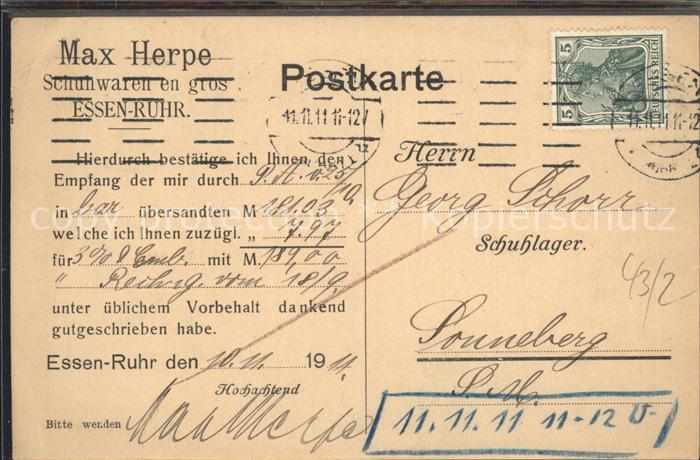 Max Herpe
Schuhwaren en gros
ESSEN-RUHR.
Postkarte
11.11.11 11-12V
5 5
DEUTSCHES REICH
11.11.11 11-12
Hierdurch bestätige ich Ihnen den
Empfang der mir durch P.A. v. 25/10.
in bar übersandten M 181,03
welche ich Ihnen zuzügl. „ 7.97
für 3% mit M. 189,00
" Rechng. vom 18/9.
unter üblichem Vorbehalt dankend
gutgeschrieben habe.
Essen-Ruhr den 10.11. 1911.
Hochachtend
Bitte wenden Max Herpe
Herrn
Georg Schorr
Schuhlager.
43/2
Sonneberg
S.M.
11.11.11 11-12 V-